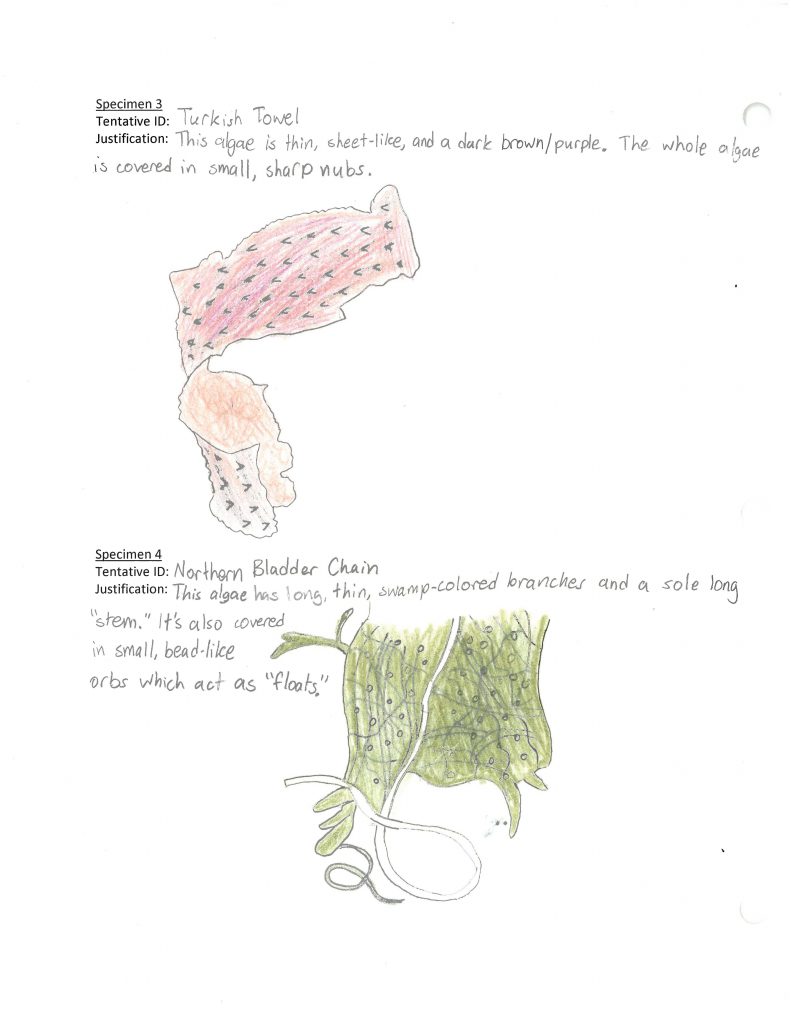 Specimen 3
Tentative ID: Turkish Towel
Justification: This algae is thin, sheet-like, and a dark brown/purple. The whole algae
is covered in small, sharp nubs.
Specimen 4
Tentative ID: Northern Bladder Chain
Justification: This algae has long, thin, swamp-colored branches and a sole long
"stem." It's also covered
in small, bead-like
orbs which act as "floats."